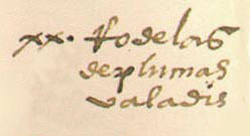 xx. Rodelas
deplumas
valadis